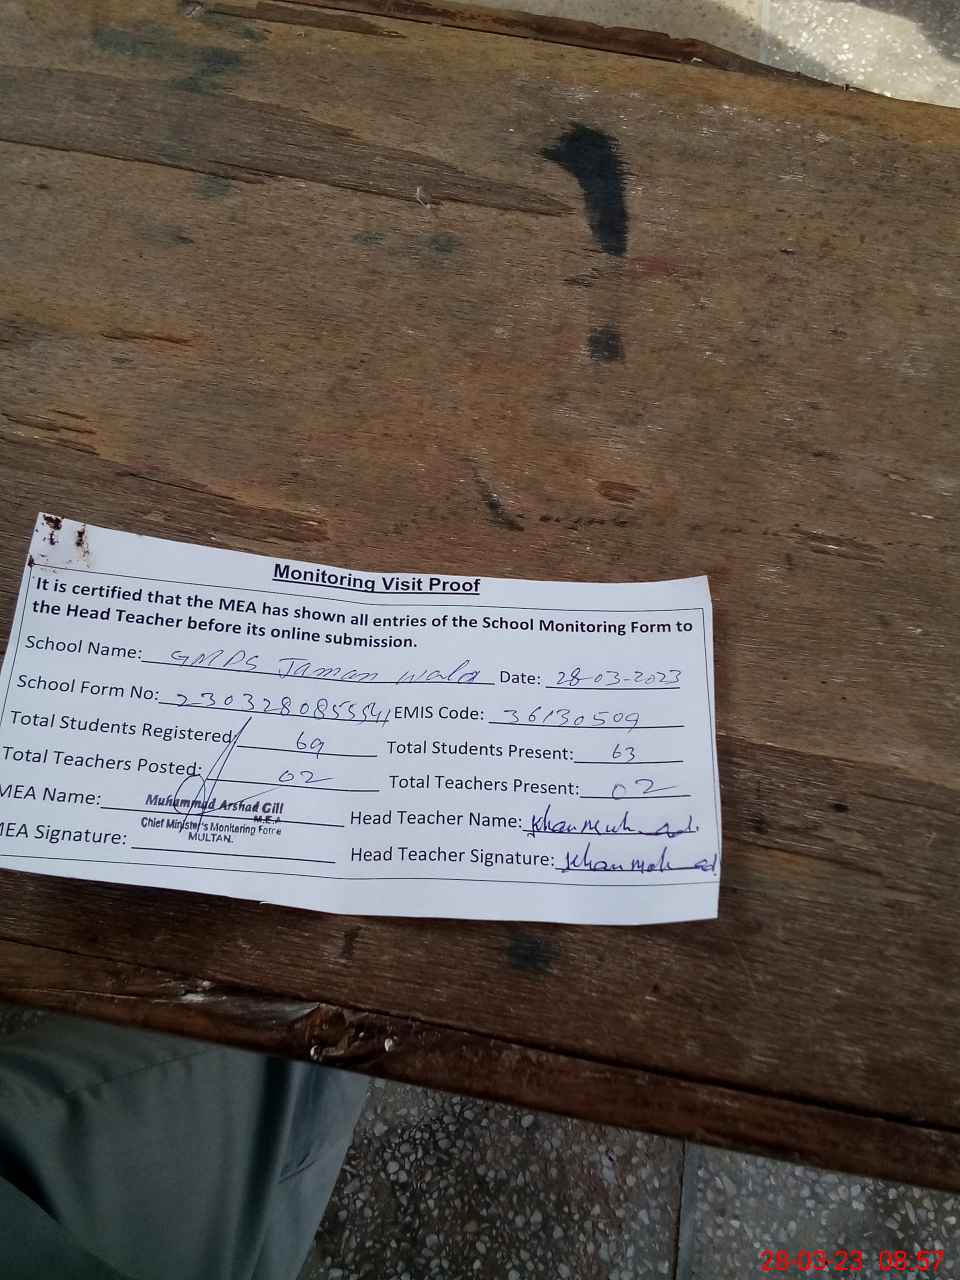 Monitoring Visit Proof
It is certified that the MEA has shown all entries of the School Monitoring Form to
the Head Teacher before its online submission.
School Name: GMPS Jaman Wala Date: 28-03-2023
School Form No: 230328085554 EMIS Code: 36130509
Total Students Registered: 69 Total Students Present: 63
Total Teachers Posted: 02 Total Teachers Present: 02
MEA Name: Muhammad Arshad Gill Head Teacher Name: Khan Muhammad
M.E.A
Chief Minister's Monitoring Force
MULTAN.
MEA Signature: Head Teacher Signature: Khan
28-03-23 08:57